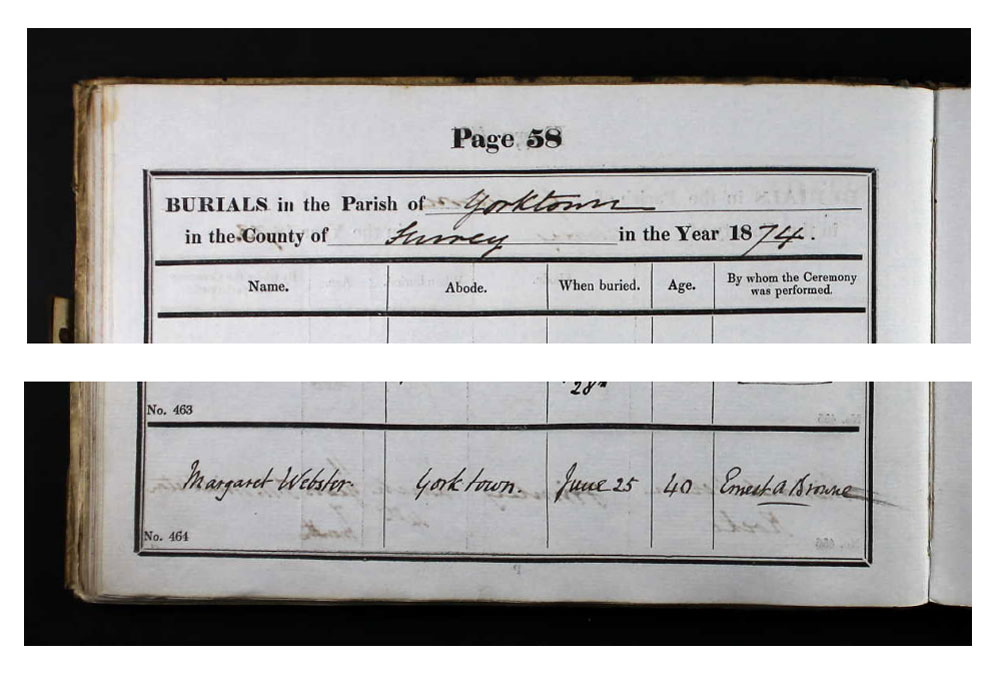 Page 58
BURIALS in the Parish of Yorktown
in the County of Surrey in the Year 1874.
Name. Abode. When buried. Age. By whom the Ceremony was performed.
28th
No. 463
Margaret Webster Yorktown. June 25 40 Ernest A Browne
No. 464